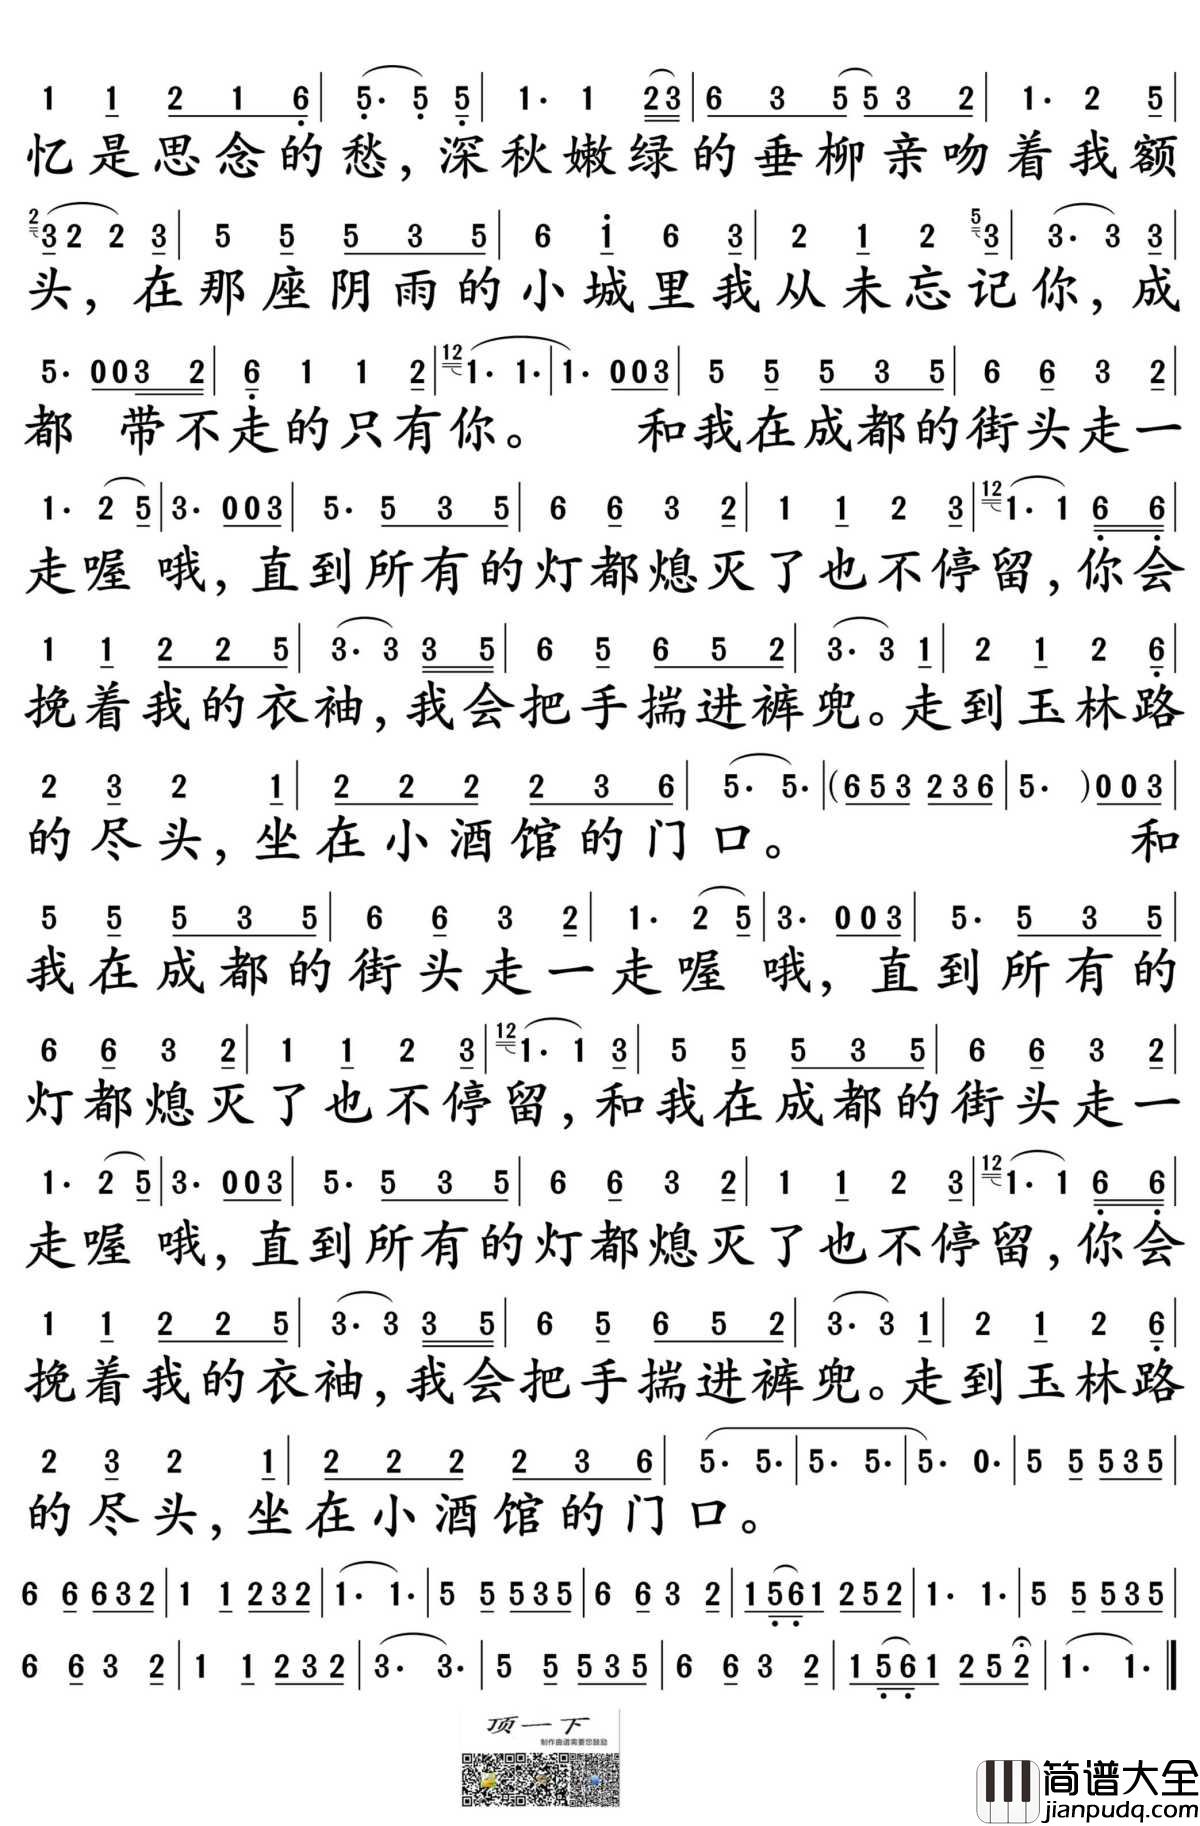 1 1 2 1 6 | 5· 5 5 | 1· 1 23 | 6 3 5 5 3 2 | 1· 2 5
忆是思念的愁,深秋嫩绿的垂柳亲吻着我额
2 3 2 2 3 | 5 5 5 3 5 | 6 1 6 3 | 2 1 2 5 3 | 3· 3 3 |
头,在那座阴雨的小城里我从未忘记你,成
5· 0 0 3 2 | 6 1 1 2 | 12 1· 1· | 1· 0 0 3 | 5 5 5 3 5 | 6 6 3 2 |
都 带不走的只有你。 和我在成都的街头走一
1· 2 5 | 3· 0 0 3 | 5· 5 3 5 | 6 6 3 2 | 1 1 2 3 | 12 1· 1 6 6 |
走喔 哦,直到所有的灯都熄灭了也不停留,你会
1 1 2 2 5 | 3· 3 3 5 | 6 5 6 5 2 | 3· 3 1 | 2 1 2 6 |
挽着我的衣袖,我会把手揣进裤兜。走到玉林路
2 3 2 1 | 2 2 2 2 3 6 | 5· 5· | (6 5 3 2 3 6 | 5· ) 0 0 3 |
的尽头,坐在小酒馆的门口。 和
5 5 5 3 5 | 6 6 3 2 | 1· 2 5 | 3· 0 0 3 | 5· 5 3 5
我在成都的街头走一走喔 哦,直到所有的
6 6 3 2 | 1 1 2 3 | 12 1· 1 3 | 5 5 5 3 5 | 6 6 3 2 |
灯都熄灭了也不停留,和我在成都的街头走一
1· 2 5 | 3· 0 0 3 | 5· 5 3 5 | 6 6 3 2 | 1 1 2 3 | 12 1· 1 6 6 |
走喔 哦,直到所有的灯都熄灭了也不停留,你会
1 1 2 2 5 | 3· 3 3 5 | 6 5 6 5 2 | 3· 3 1 | 2 1 2 6 |
挽着我的衣袖,我会把手揣进裤兜。走到玉林路
2 3 2 1 | 2 2 2 2 3 6 | 5· 5· | 5· 5· | 5· 0· | 5 5 5 3 5 |
的尽头,坐在小酒馆的门口。
6 6 6 3 2 | 1 1 2 3 2 | 1· 1· | 5 5 5 3 5 | 6 6 3 2 | 1 5 6 1 2 5 2 | 1· 1· | 5 5 5 3 5 |
6 6 3 2 | 1 1 2 3 2 | 3· 3· | 5 5 5 3 5 | 6 6 3 2 | 1 5 6 1 2 5 2 | 1· 1· ‖
顶一下
制作曲谱需要您鼓励
简谱大全
jianpudq.com